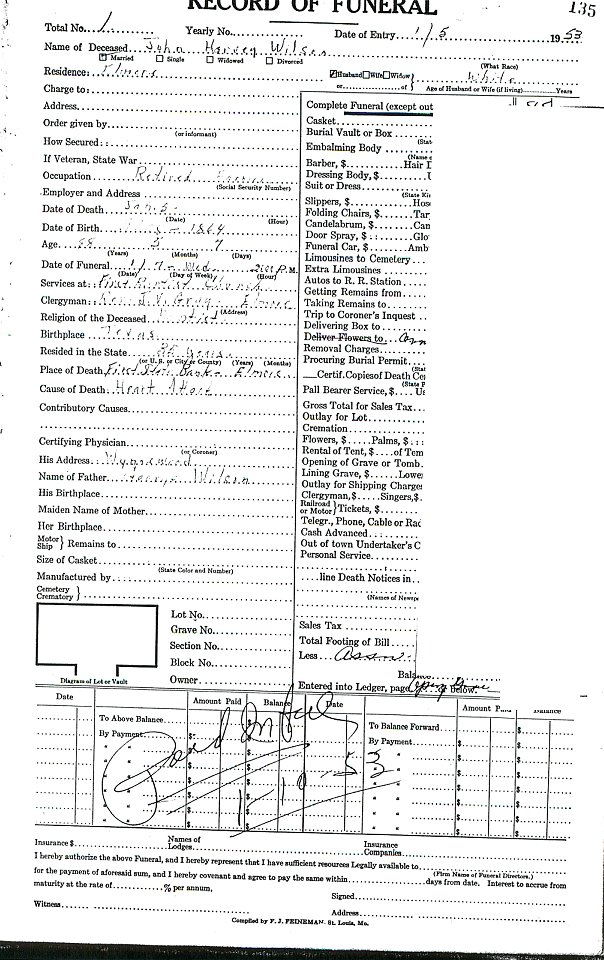 RECORD OF FUNERAL
135
Total No. 1. Yearly No. Date of Entry 1/5 1953
Name of Deceased John Harvey Wilson
Married Single Widowed Divorced (What Race)
Residence: Elmore Husband Wife Widow White
or of Age of Husband or Wife (if living) Years
Charge to:
Address
Order given by
(or informant)
How Secured:
If Veteran, State War
Occupation Retired
(Social Security Number)
Employer and Address
Date of Death Jan 5
(Date) (Hour)
Date of Birth 1864
Age 88 5 7
(Years) (Months) (Days)
Date of Funeral 1/7 - Wed 2:00 P. M.
(Date) (Day of Week) (Hour)
Services at: First Baptist Church
Clergyman: Rev. J. V. Gray Elmore
(Address)
Religion of the Deceased
Birthplace Texas
Resided in the State 35 years
(or U. S. or City or County) (Years) (Months)
Place of Death First State Bank - Elmore
Cause of Death: Heart Attack
Contributory Causes
Certifying Physician
(or Coroner)
His Address Wynnewood
Name of Father George Wilson
His Birthplace
Maiden Name of Mother
Her Birthplace
Motor Ship Remains to
Size of Casket
(State Color and Number)
Manufactured by
Cemetery Crematory
Lot No.
Grave No.
Section No.
Block No.
Owner
Diagram of Lot or Vault
Complete Funeral (except out
Casket
Burial Vault or Box
(Stat
Embalming Body
(Name o
Barber, $ Hair D
Dressing Body, $
Suit or Dress
(State Ki
Slippers, $ Hos
Folding Chairs, $ Tar
Candelabrum, $ Can
Door Spray, $ Glo
Funeral Car, $ Amb
Limousines to Cemetery
Extra Limousines
Autos to R. R. Station
Getting Remains from
Taking Remains to
Trip to Coroner's Inquest
Delivering Box to
Deliver Flowers to
Removal Charges
(Stat
Procuring Burial Permit
Certif. Copies of Death Cer
(State P
Pall Bearer Service, $
Gross Total for Sales Tax
Outlay for Lot
Cremation
Flowers, $ Palms, $
Rental of Tent, $ of Tem
Opening of Grave or Tomb
Lining Grave, $ Lowe
Outlay for Shipping Charges
Clergyman, $ Singers, $
Railroad or Motor Tickets, $
Telegr., Phone, Cable or Rad
Cash Advanced
Out of town Undertaker's C
Personal Service
line Death Notices in
(Names of Newsp
Sales Tax
Total Footing of Bill
Less Assn.
Balance
Entered into Ledger, page or below.
Date Amount Paid Balance Date Amount Paid Balance
To Above Balance $ To Balance Forward $
By Payment $ By Payment $
Paid In full
1-10-53
Insurance $ Names of Lodges Insurance Companies
I hereby authorize the above Funeral, and I hereby represent that I have sufficient resources Legally available to
(Firm Name of Funeral Directors.)
for the payment of aforesaid sum, and I hereby covenant and agree to pay the same within days from date. Interest to accrue from
maturity at the rate of % per annum,
Signed
Witness Address
Compiled by F. J. FEINEMAN, St. Louis, Mo.